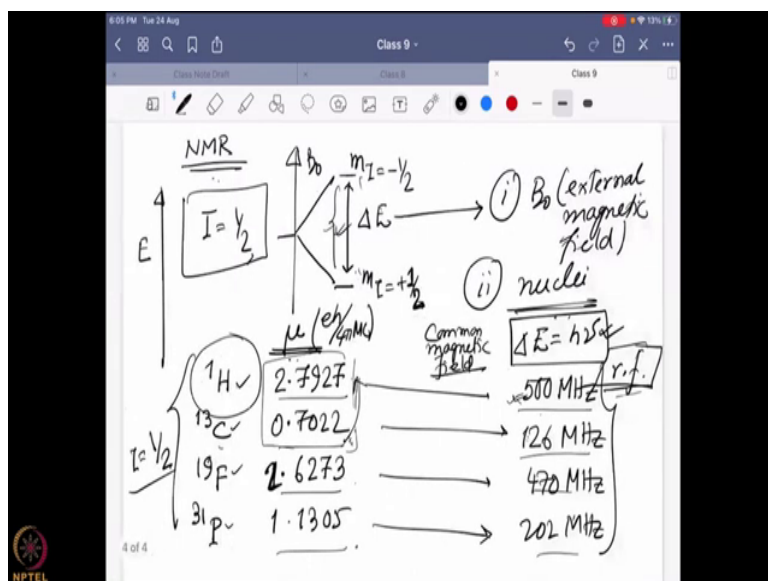 6:05 PM Tue 24 Aug
13%
Class 9
Class Note Draft
Class 8
Class 9
NMR
E
I = 1/2
B₀
m_I = -1/2
ΔE
m_I = +1/2
i) B₀ (external magnetic field)
ii) nuclei
μ (eh/4πMc)
Common magnetic field
ΔE = hν
r.f.
I = 1/2
¹H ✓ 2.7927 500 MHz
¹³C ✓ 0.7022 126 MHz
¹⁹F ✓ 2.6273 470 MHz
³¹P ✓ 1.1305 202 MHz
4 of 4
NPTEL